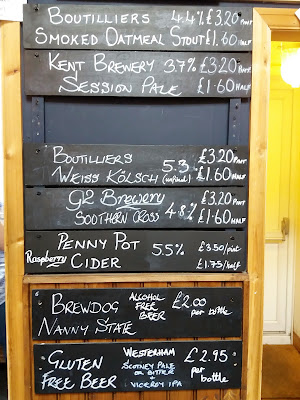 Boutilliers 4.4% £3.20 Pint
Smoked Oatmeal Stout £1.60 Half
Kent Brewery 3.7% £3.20 Pint
Session Pale £1.60 Half
Boutilliers 5.3 £3.20 Pint
Weiss Kölsch (unfined) £1.60 Half
G2 Brewery £3.20 Pint
Soothern Cross 4.8% £1.60 Half
Penny Pot 5.5% £3.50/pint
Raspberry Cider £1.75/half
Brewdog Alcohol Free Beer £2.00
Nanny State per bottle
Gluten Westerham £2.95
Free Beer Scotney Pale or Bitter + Viceroy IPA per bottle